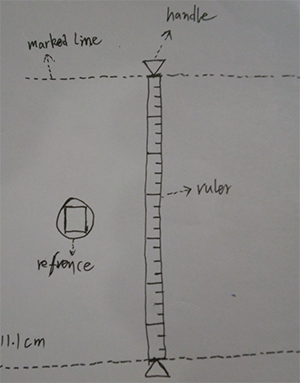 handle
marked line
ruler
refrence
11.1cm